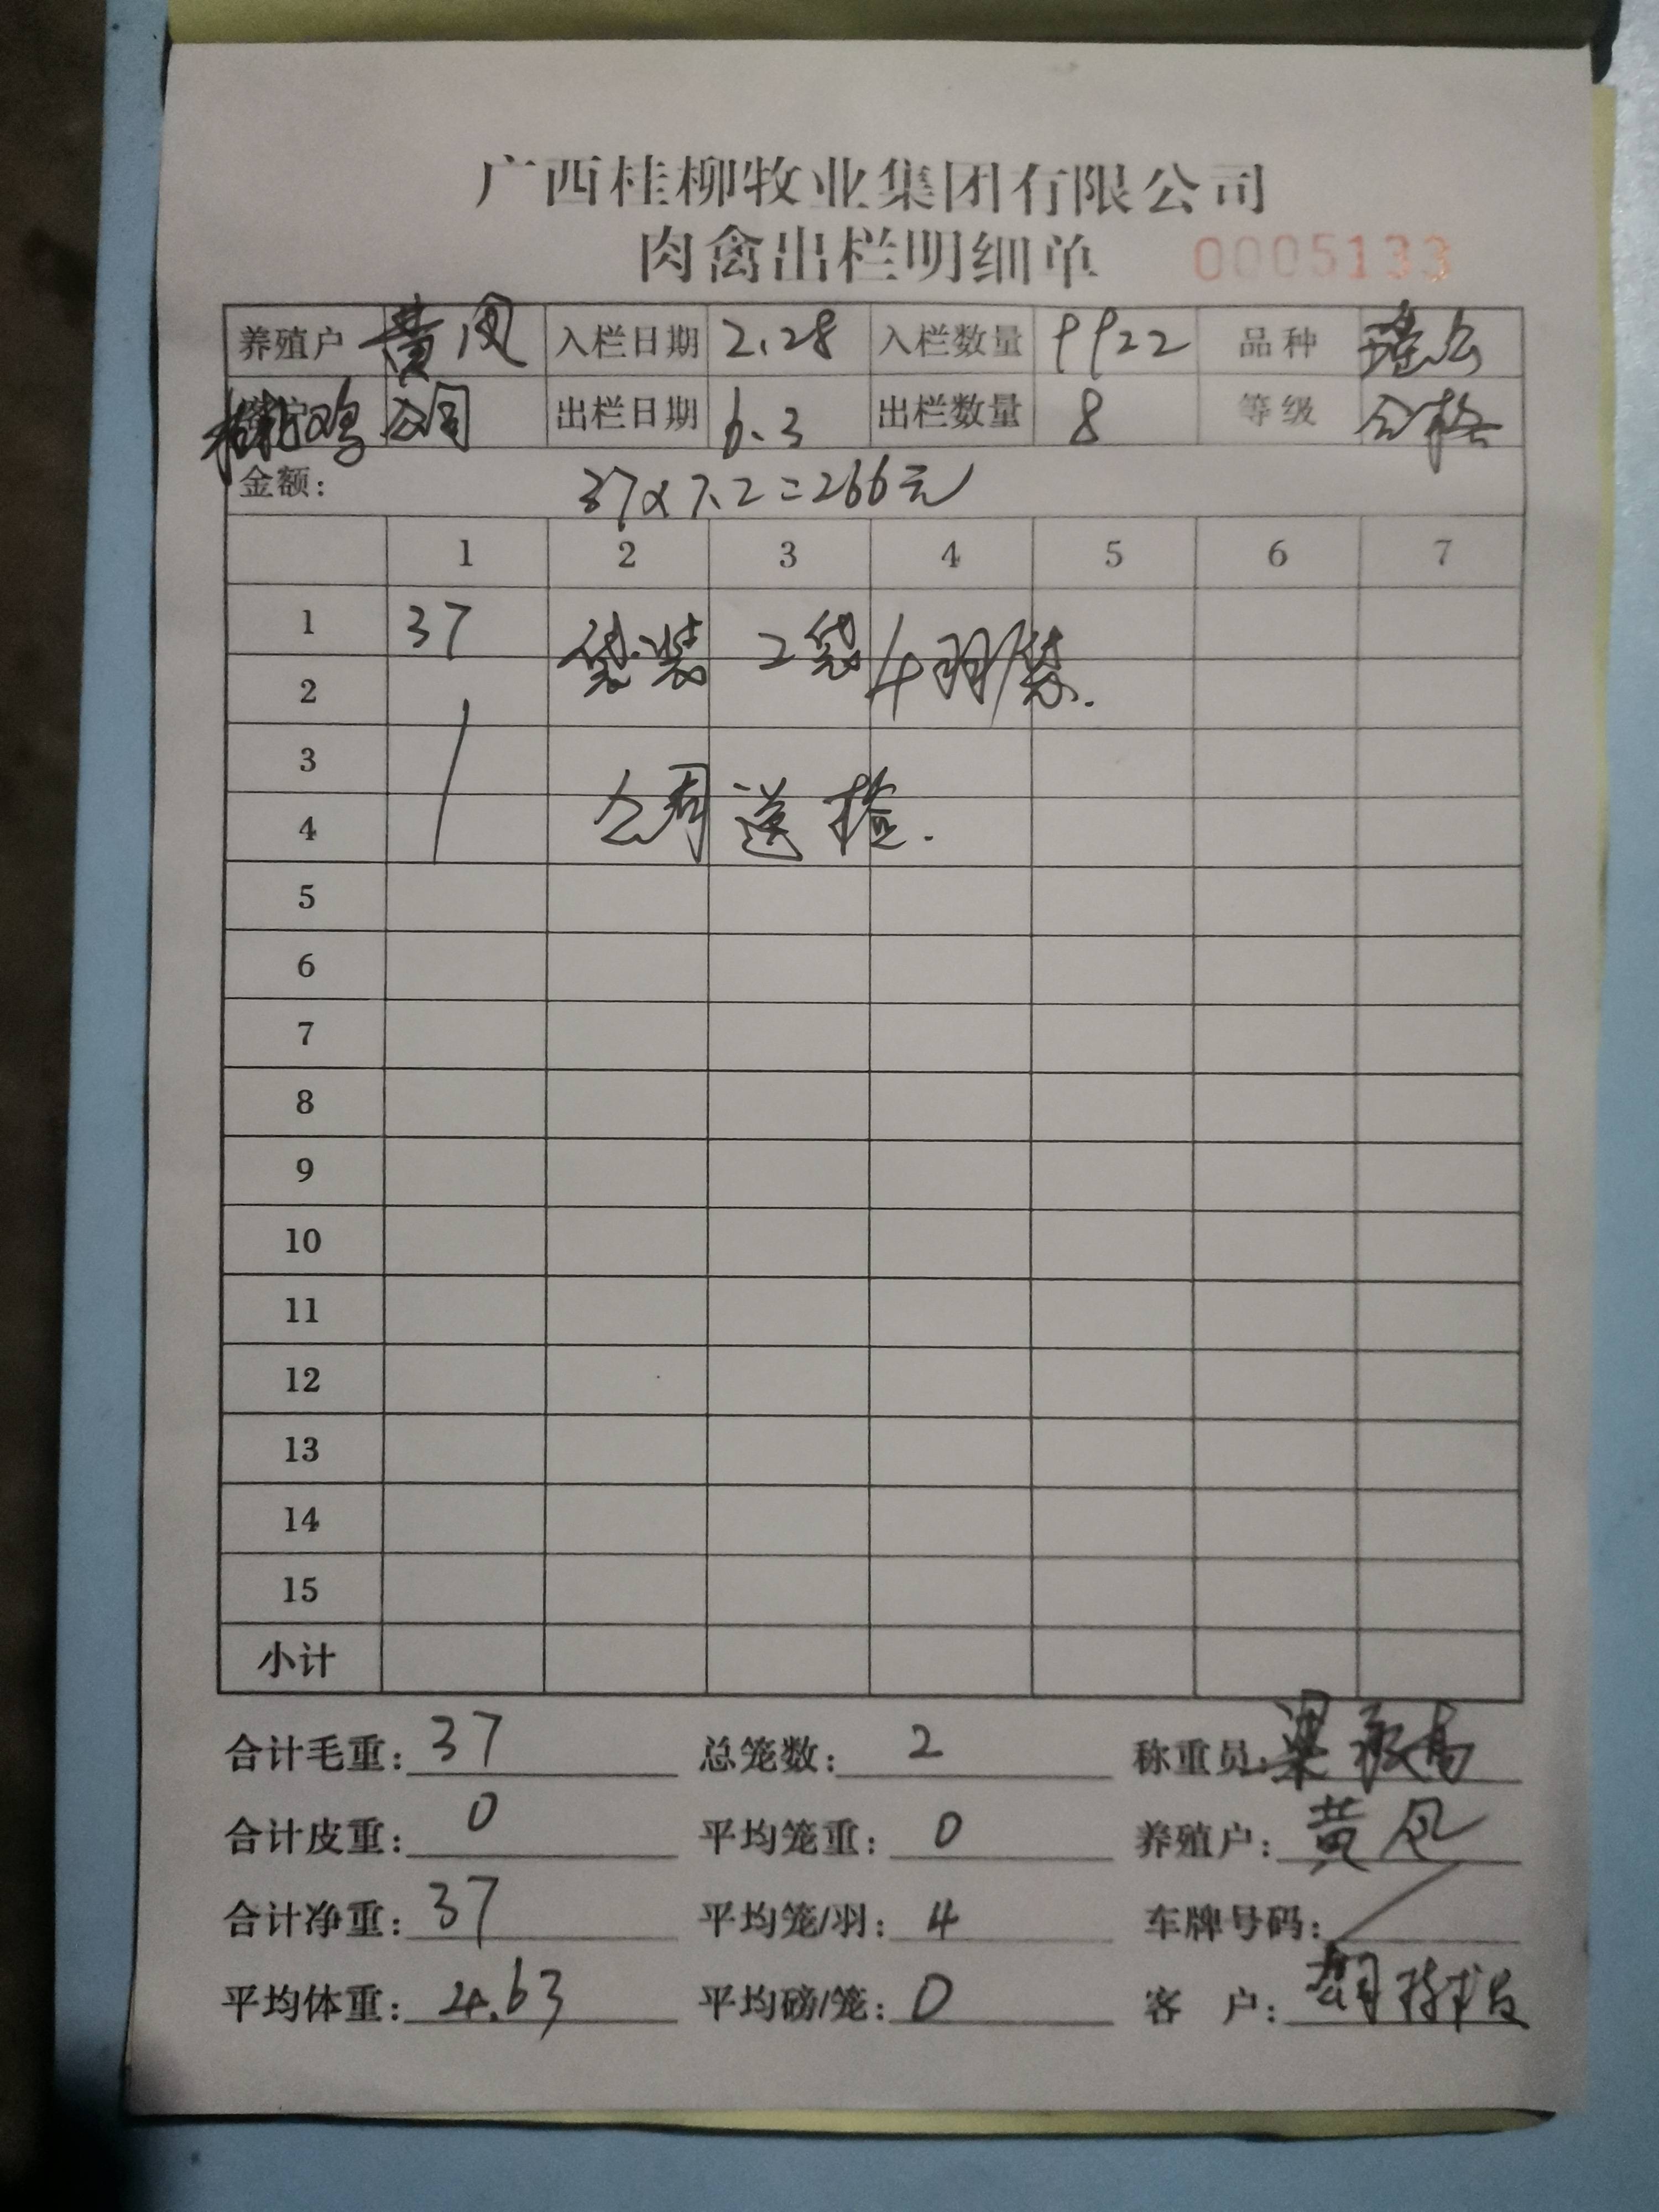 广西桂柳牧业集团有限公司
肉禽出栏明细单 0005133
养殖户 黄凤 入栏日期 2.28 入栏数量 9922 品种 瑶公
鸡 公司 出栏日期 6.3 出栏数量 8 等级 合格
金额: 37×7.2=266元
1 2 3 4 5 6 7
1 37 袋装 2袋 4羽/袋.
2
3
4 公司送检.
5
6
7
8
9
10
11
12
13
14
15
小计
合计毛重: 37 总笼数: 2 称重员: 梁
合计皮重: 0 平均笼重: 0 养殖户: 黄凤
合计净重: 37 平均笼/羽: 4 车牌号码: /
平均体重: 4.63 平均磅/笼: 0 客 户: 胡